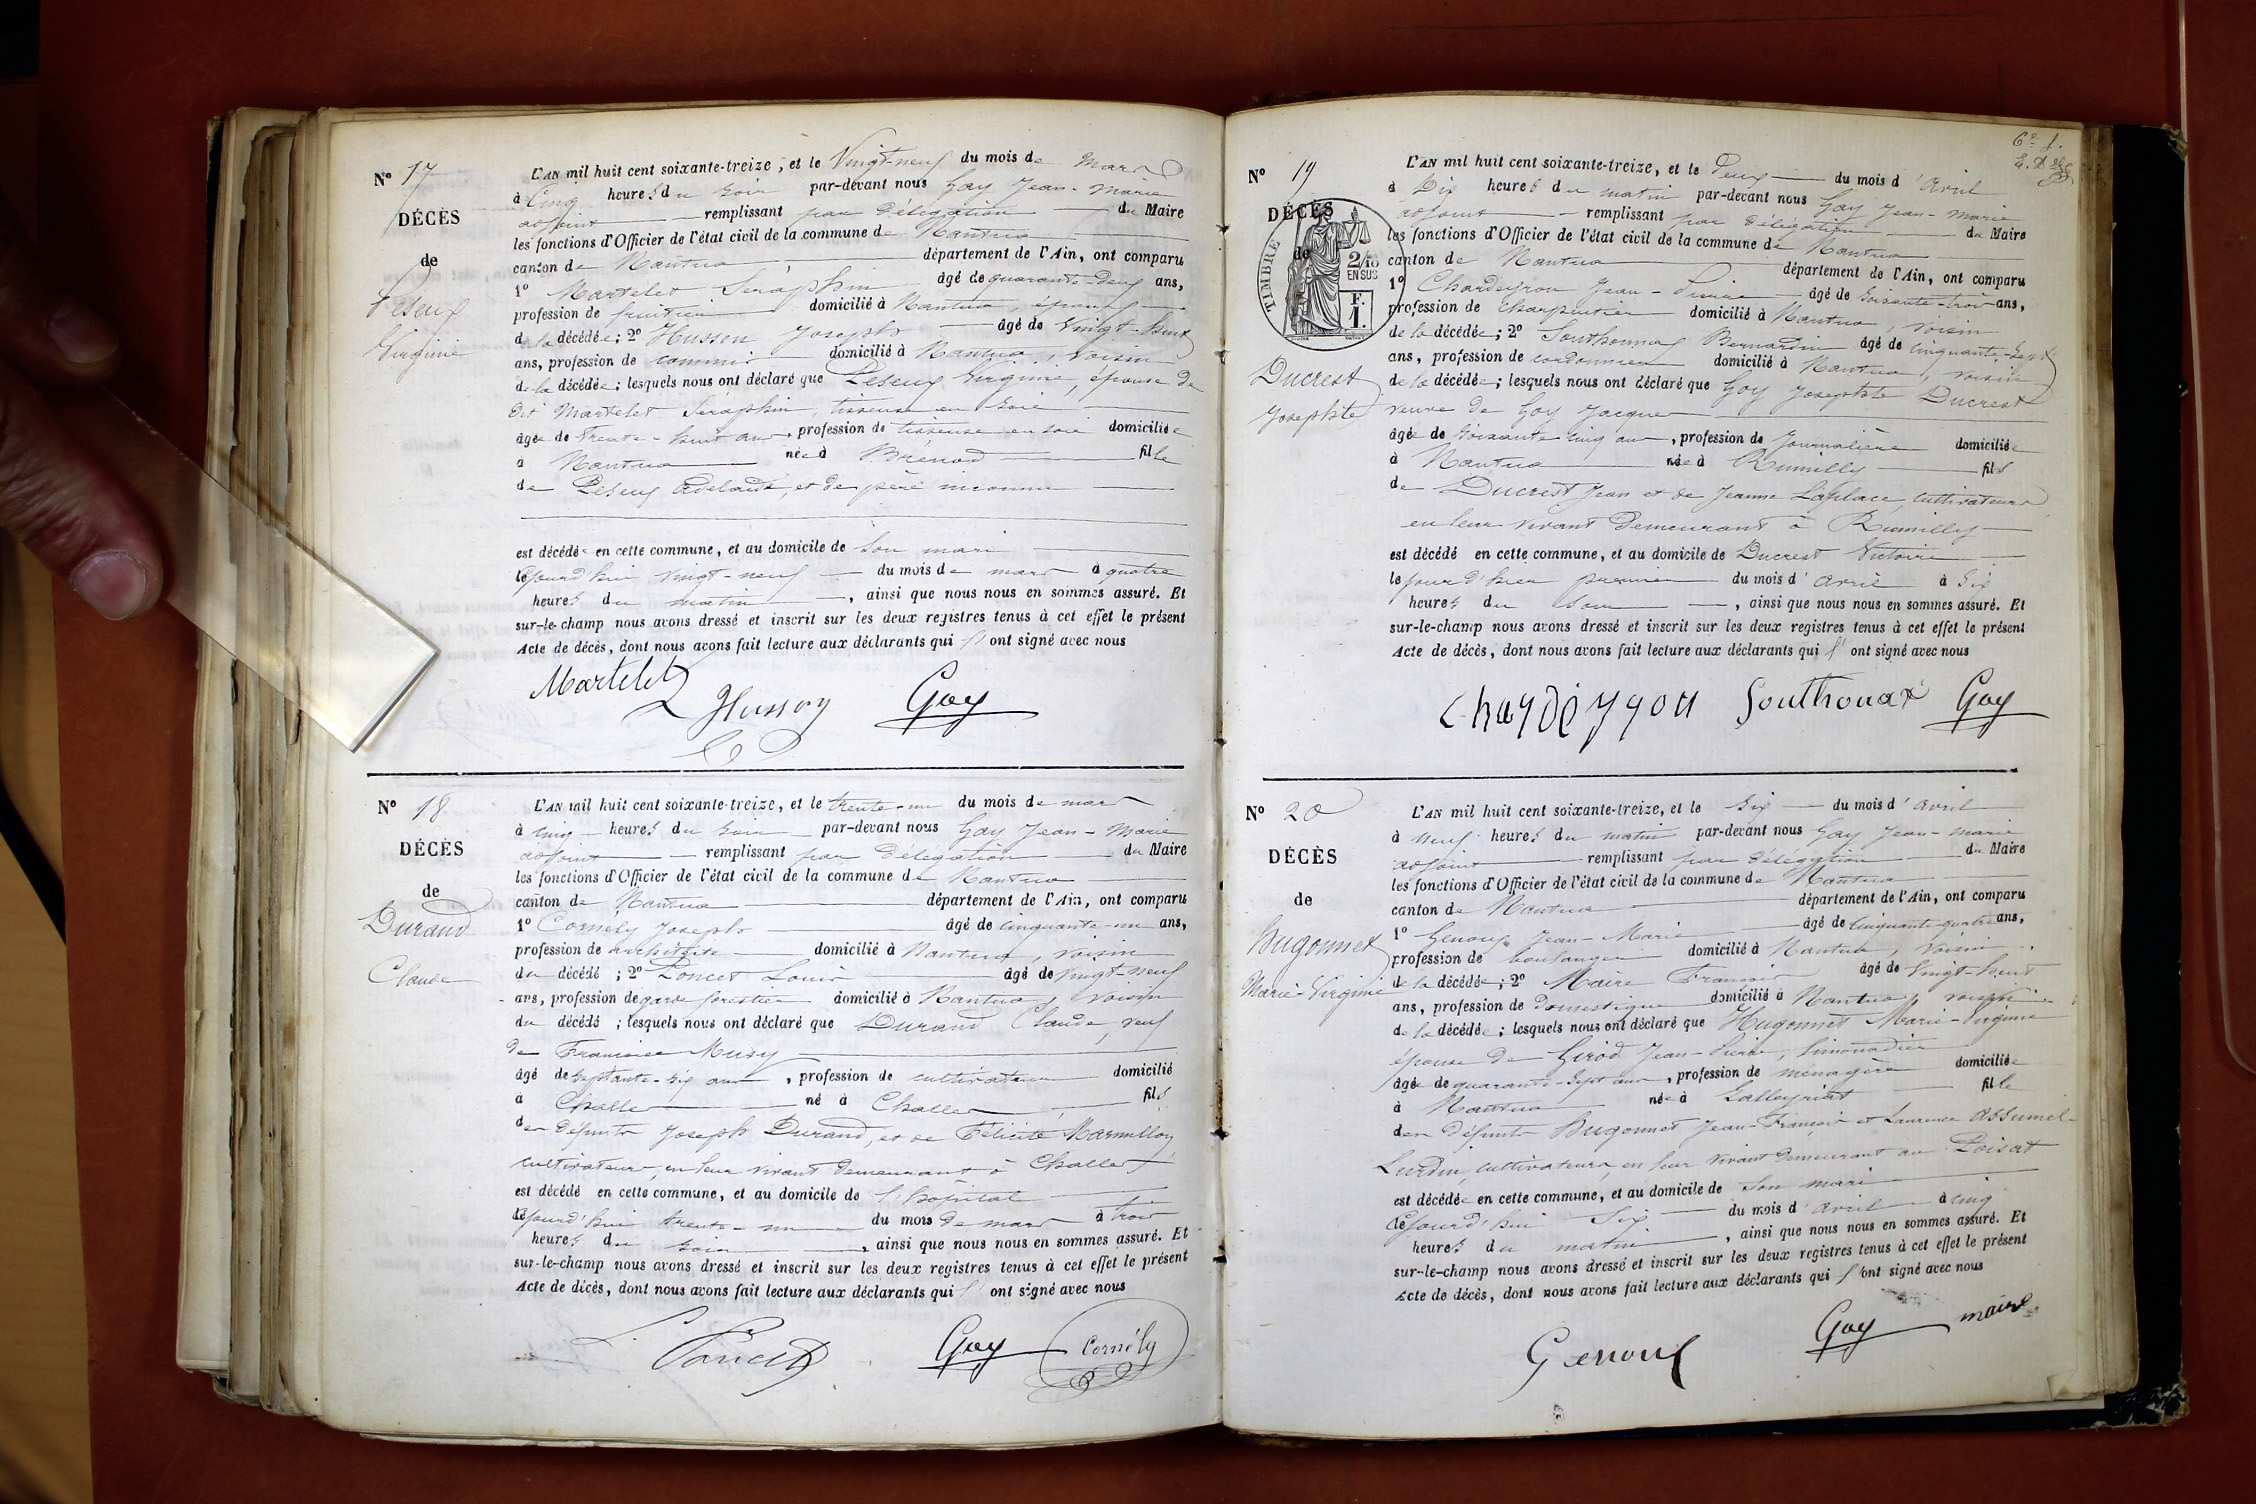 N° 17
DÉCÈS
de
Virginie
L'AN mil huit cent soixante-treize, et le Vingt-neuf du mois de Mars
à Cinq heures du soir par-devant nous Goy Jean-Marie
adjoint remplissant par délégation du Maire
les fonctions d'Officier de l'état civil de la commune de Nantua
canton de Nantua département de l'Ain, ont comparu
1° Martelet Séraphin âgé de quarante-deux ans,
profession de fruitier domicilié à Nantua, époux
de la décédée; 2° Husson Joseph âgé de Vingt-huit
ans, profession de commis domicilié à Nantua, voisin
de la décédée; lesquels nous ont déclaré que Virginie, épouse de
dit Martelet Séraphin, tisseuse en soie
âgée de trente-huit ans, profession de tisseuse en soie domiciliée
à Nantua née à Brénod fille
de Adélaïde, et de père inconnu
est décédée en cette commune, et au domicile de son mari
lejourd'hui vingt-neuf du mois de mars à quatre
heures du matin, ainsi que nous nous en sommes assuré. Et
sur-le-champ nous avons dressé et inscrit sur les deux registres tenus à cet effet le présent
Acte de décès, dont nous avons fait lecture aux déclarants qui l'ont signé avec nous
Martelet Husson Goy
N° 18
DÉCÈS
de
Durand
Claude
L'AN mil huit cent soixante-treize, et le trente-un du mois de mars
à cinq heures du soir par-devant nous Goy Jean-Marie
adjoint remplissant par délégation du Maire
les fonctions d'Officier de l'état civil de la commune de Nantua
canton de Nantua département de l'Ain, ont comparu
1° Cornély Joseph âgé de cinquante-un ans,
profession de architecte domicilié à Nantua, voisin
du décédé; 2° Poncet Louis âgé de vingt-neuf
ans, profession de garde forestier domicilié à Nantua, voisin
du décédé; lesquels nous ont déclaré que Durand Claude, veuf
de Françoise Musy
âgé de septante-six ans, profession de cultivateur domicilié
à Challes né à Challes fils
des défunts Joseph Durand, et de Félicité Marmillon,
cultivateurs, en leur vivant demeurant à Challes
est décédé en cette commune, et au domicile de l'hôpital
lejourd'hui trente-un du mois de mars à trois
heures du soir, ainsi que nous nous en sommes assuré. Et
sur-le-champ nous avons dressé et inscrit sur les deux registres tenus à cet effet le présent
Acte de décès, dont nous avons fait lecture aux déclarants qui l'ont signé avec nous
L. Poncet Goy Cornély
6e f.
N° 19
DÉCÈS
de
TIMBRE
2/10
EN SUS
F.
1.
Ducrest
Josephte
L'AN mil huit cent soixante-treize, et le Deux du mois d'Avril
à Dix heures du matin par-devant nous Goy Jean-Marie
adjoint remplissant par délégation du Maire
les fonctions d'Officier de l'état civil de la commune de Nantua
canton de Nantua département de l'Ain, ont comparu
1° Chardeyron Jean-Pierre âgé de soixante-trois ans,
profession de charpentier domicilié à Nantua, voisin
de la décédée; 2° Southonnax Bernardin âgé de cinquante-sept
ans, profession de cordonnier domicilié à Nantua, voisin
de la décédée; lesquels nous ont déclaré que Goy Josephte Ducrest
veuve de Goy Jacques
âgée de soixante cinq ans, profession de Journalière domiciliée
à Nantua née à Rumilly fille
de Ducrest Jean et de Jeanne Laplace, cultivateurs
en leur vivant demeurant à Rumilly
est décédé en cette commune, et au domicile de Ducrest Victoire
le jour d'hier premier du mois d'avril à six
heures du soir, ainsi que nous nous en sommes assuré. Et
sur-le-champ nous avons dressé et inscrit sur les deux registres tenus à cet effet le présent
Acte de décès, dont nous avons fait lecture aux déclarants qui l'ont signé avec nous
Chardeyron Southonax Goy
N° 20
DÉCÈS
de
Hugonnet
Marie-Virginie
L'AN mil huit cent soixante-treize, et le six du mois d'avril
à neuf heures du matin par-devant nous Goy Jean-Marie
adjoint remplissant par délégation du Maire
les fonctions d'Officier de l'état civil de la commune de Nantua
canton de Nantua département de l'Ain, ont comparu
1° Genoux Jean-Marie âgé de cinquante-quatre ans,
profession de boulanger domicilié à Nantua, voisin
de la décédée; 2° Maire François âgé de Vingt-huit
ans, profession de domestique domicilié à Nantua, voisin
de la décédée; lesquels nous ont déclaré que Hugonnet Marie-Virginie
épouse de Girod Jean-Pierre, limonadier
âgée de quarante-sept ans, profession de ménagère domiciliée
à Nantua née à Lalleyriat fille
des défunts Hugonnet Jean-François et Laurence Assumel-
Lurdin, cultivateurs, en leur vivant demeurant au Poizat
est décédée en cette commune, et au domicile de son mari
lejourd'hui six du mois d'avril à cinq
heures du matin, ainsi que nous nous en sommes assuré. Et
sur-le-champ nous avons dressé et inscrit sur les deux registres tenus à cet effet le présent
Acte de décès, dont nous avons fait lecture aux déclarants qui l'ont signé avec nous
Genoux Goy maire